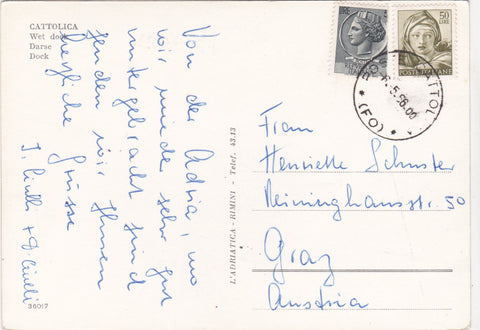 CATTOLICA
Wet dock
Darse
Dock
Von der Adria, wo
wir wieder sehr gut
untergebracht sind
senden wir Ihnen
herzliche Grüsse
36017
L'ADRIATICA - RIMINI - Telef. 43.13
50
LIRE
POSTE ITALIANE
CATTOL
.5.66.00
(FO)
Frau
Henriette Schuster
Reininghausstr. 50
Graz
Austria